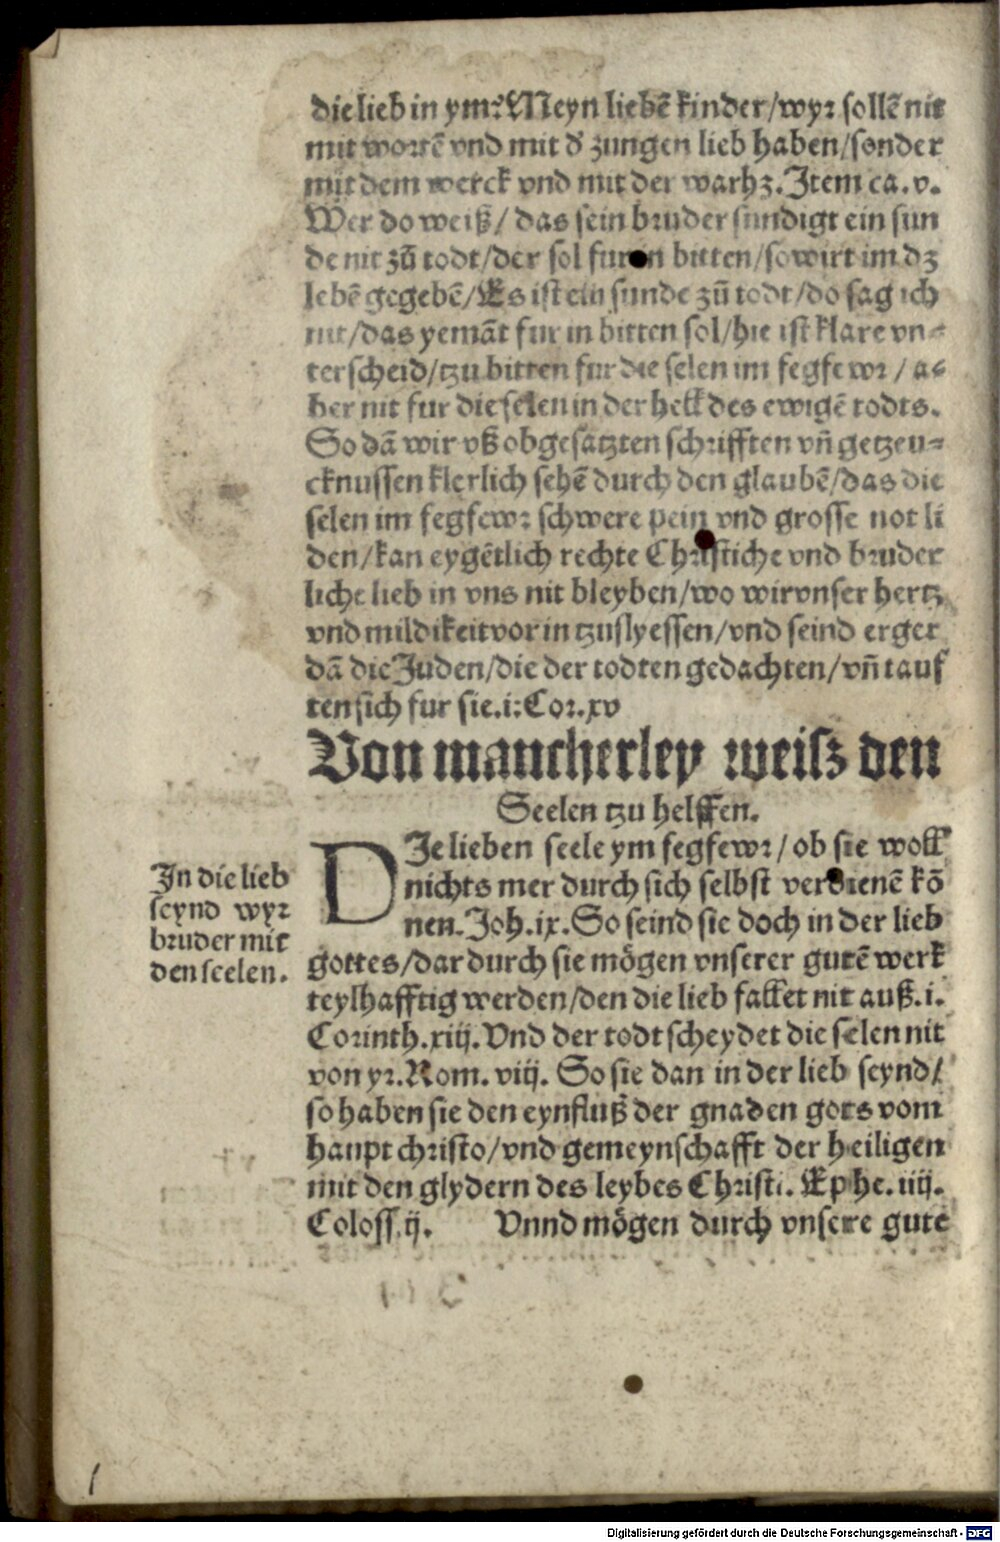 die lieb in ym? Meyn liebē kinder/wyr sollē nit
mit wortē vnd mit d̕ zungen lieb haben/sonder
mit dem werck vnd mit der warhꝫ. Item ca. v.
Wer do weiß/ das sein bruder sundigt ein sun
de nit zū todt/der sol fur in bitten/so wirt im dꝫ
lebē gegebē/Es ist ein sunde zū todt/do sag ich
nit/das yemāt fur in bitten sol/hie ist klare vn⸗
terscheid/tzu bitten fur die selen im fegfewr / a⸗
ber nit fur die selen in der hell des ewigē todts.
So dā wir vß obgesatzten schrifften vn̄ getzeu⸗
cknussen klerlich sehē durch den glaubē/das die
selen im fegfewr schwere pein vnd grosse not li
den/kan eygētlich rechte Christiche vnd bruder
liche lieb in vns nit bleyben/wo wir vnser hertz
vnd mildikeit vor in tzuslyessen/vnd seind erger
dā die Juden/die der todten gedachten/vn̄ tauf
ten sich fur sie. i: Cor. xv
Von mancherley weisz den
Seelen tzu helffen.
In die lieb
seynd wyr
bruder mit
den seelen.
DIe lieben seele ym fegfewr/ ob sie woll
nichts mer durch sich selbst verdienē kō
nen. Joh. ix. So seind sie doch in der lieb
gottes/dardurch sie mögen vnserer gutē werk
teylhafftig werden/den die lieb fallet nit auß. i.
Corinth. xiij. Vnd der todt scheydet die selen nit
von yr. Rom. viij. So sie dan in der lieb seynd/
so haben sie den eynfluß der gnaden gots vom
haupt christo/vnd gemeynschafft der heiligen
mit den glydern des leybes Christi. Ephe. iiij.
Coloss. ij. Vnnd mögen durch vnsere gute
Digitalisierung gefördert durch die Deutsche Forschungsgemeinschaft - DFG